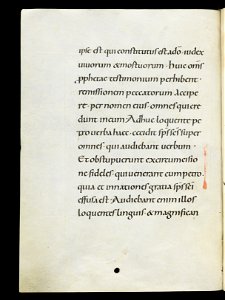 ipse est qui constitutus est a dō iudex
uiuorum & mortuorum · Huic om̄s
ꝓphetae testimonium perhibent ·
remissionem peccatorum accipe
re · per nomen eius · omnes qui cre
dunt in eum Adhuc loquente pe
tro uerba haec · cecidit sp̄s s̄c̄s super
omnes · qui audiebant uerbum ·
Et obstupuerunt ex circumcisio
ne fideles · qui uenerant cum petro ·
quia et in nationes gratia sp̄s s̄c̄i
effusa est · Audiebant enim illos
loquentes linguis · & magnifican